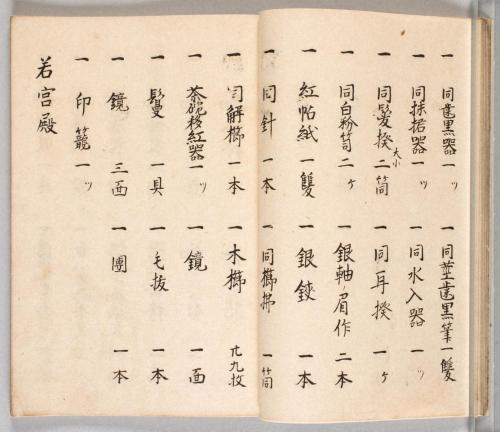 一 同歯黒器 一ツ 一 同莖歯黒筆 一雙
一 同抹拒器 一ツ 一 同水入器 一ツ
一 同髪揆 大小 二筒 一 同耳揆 一ケ
一 同白粉筒 二ケ 一 銀軸ノ眉作 二本
一 紅帖紙 一雙 一 銀鋏 一本
一 同針 一本 一 同櫛拂 一筒
一 同解櫛 一本 一 木櫛 廿九枚
一 茶碗移紅器 一ツ 一 鏡 一面
一 鬘 一具 一 毛抜 一本
一 鏡 三面 一 團 一本
一 印籠 一ツ
若宮殿